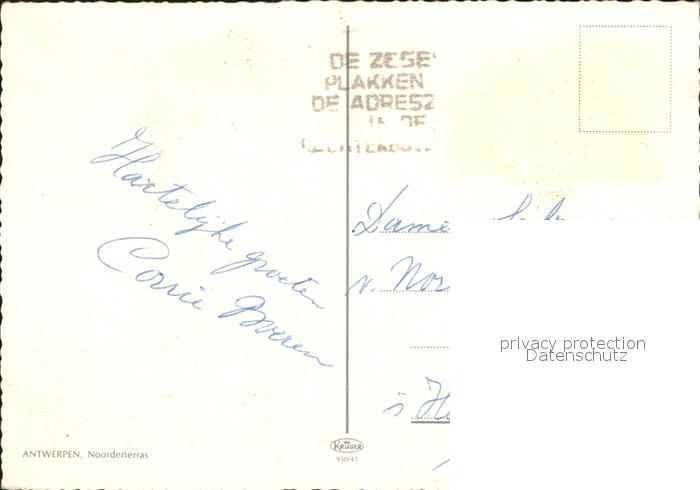 DE ZESE
PLAKKEN
DE ADRESZ
IN DE
Hartelijke groeten
Corrie
Dame
v. Nor
privacy protection
Datenschutz
's H
ANTWERPEN, Noorderterras
KRÜGER
930/41